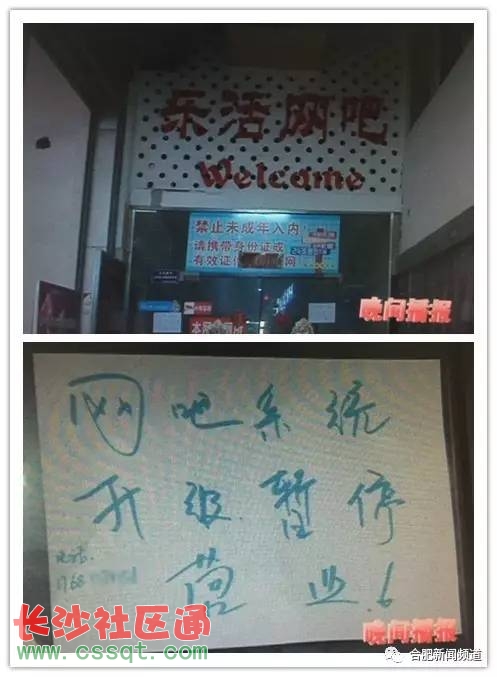 乐活网吧
Welcome
禁止未成年入内
请携带身份证或
有效证
网
晚间播报
网吧系统
升级暂停
营业!
电话:
1768
晚间播报
长沙社区通
www.cssqt.com
合肥新闻频道